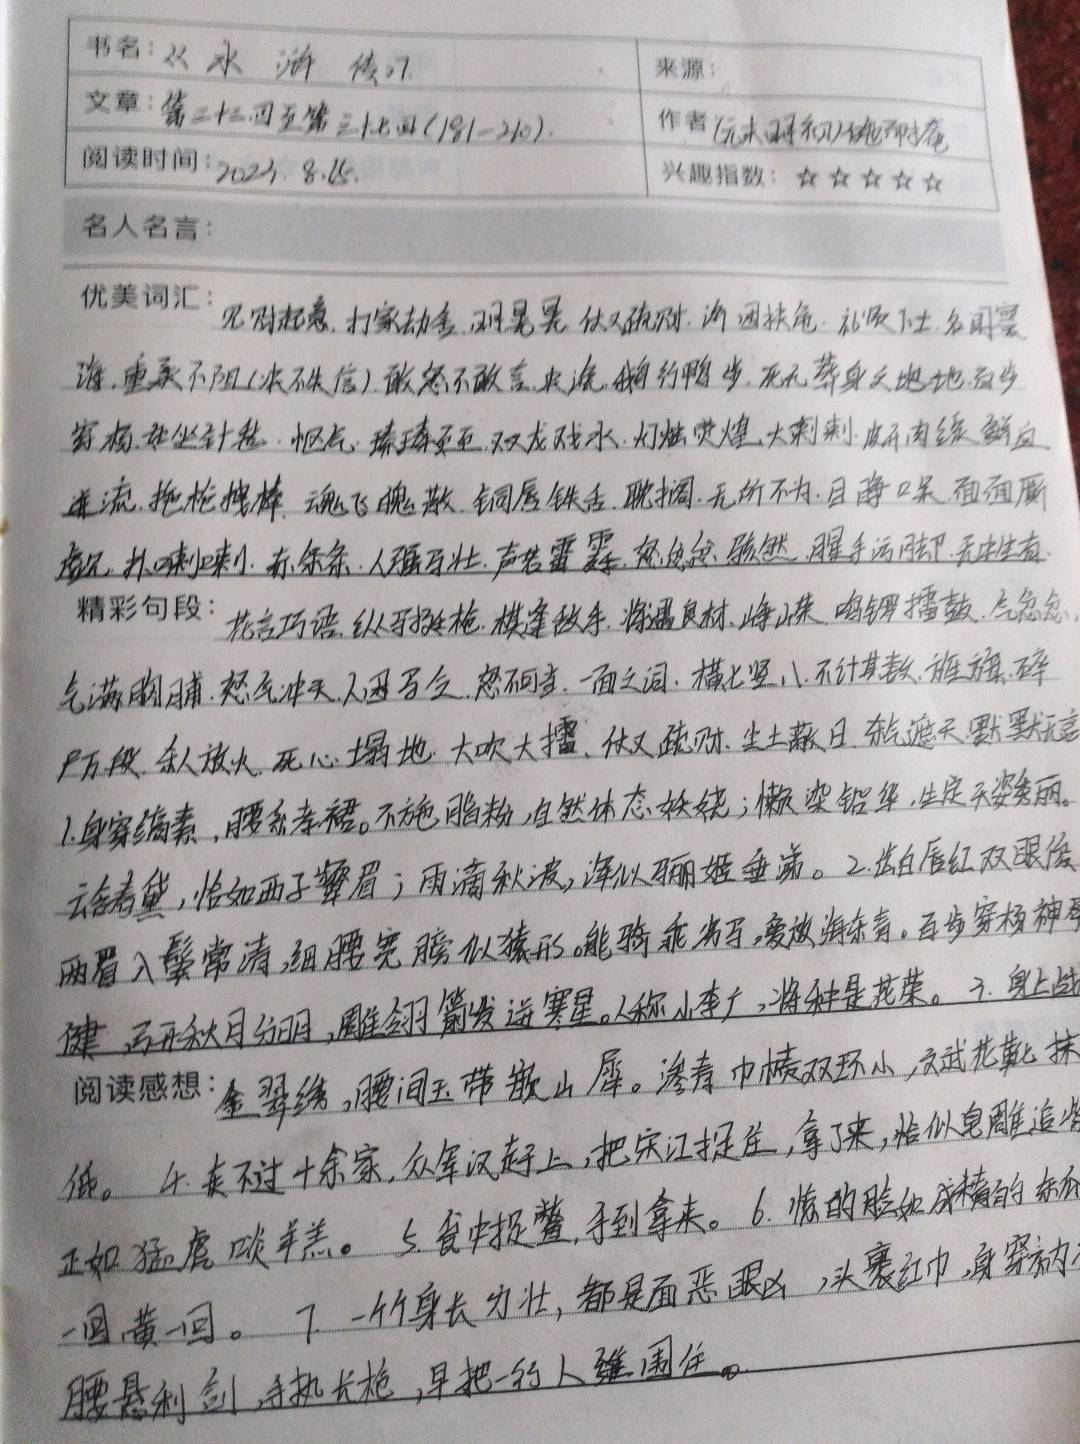 书名：《水浒传》 来源：
文章：第三十三回至第三十七回(181-210). 作者 (元末明初)施耐庵
阅读时间：2023.8.15. 兴趣指数：☆☆☆☆☆
名人名言：
优美词汇：见财起意.打家劫舍.仗义疏财.济困扶危.礼贤下士.名闻寰
海.重承不阻(决不失信).敢怒不敢言.央浼.鹅行鸭步.死无葬身之地.百步
穿杨.如坐针毡.怄气.臻臻至至.双龙戏水.灯烛荧煌.大剌剌.皮开肉绽.鲜血
迸流.拖枪拽棒.魂飞魄散.铜唇铁舌.耽搁.无所不为.目睁口呆.面面厮
觑.扑喇喇.赤条条.人强马壮.声若雷霆.怒忿忿.骇然.腥手污脚.无中生有
精彩句段：花言巧语.纵马挺枪.棋逢敌手.将遇良材.峥嵘.鸣锣擂鼓.气忿忿.
气满胸脯.怒气冲天.人困马乏.怒不可当.一面之词.横七竖八.不计其数.旌旗.碎
尸万段.杀人放火.死心塌地.大吹大擂.仗义疏财.尘土蔽日.杀气遮天.默默无言
1.身穿缟素,腰系孝裙。不施脂粉,自然体态妖娆;懒染铅华,生定天姿秀丽。
云含春黛,恰如西子颦眉;雨滴秋波,浑似骊姬垂涕。2.齿白唇红双眼俊
两眉入鬓常清,细腰宽膀似猿形。能骑乖劣马,爱放海东青。百步穿杨神臂
健,弓开秋月分明,雕翎箭发迸寒星。人称小李广,将种是花荣。3.身上战
阅读感想：金翠绣,腰间玉带嵌山犀。渗青巾帻双环小,文武花靴抹
低。 4.走不过十余家,众军汉赶上,把宋江捉住,拿了来,恰似皂雕追紫
正如猛虎啖羊羔。 5.瓮中捉鳖,手到拿来。 6.
一回黄一回。 7.一个个身长力壮,都是面恶眼凶,头裹红巾,身穿衲
腰悬利剑,手执长枪,早把一行人围住。